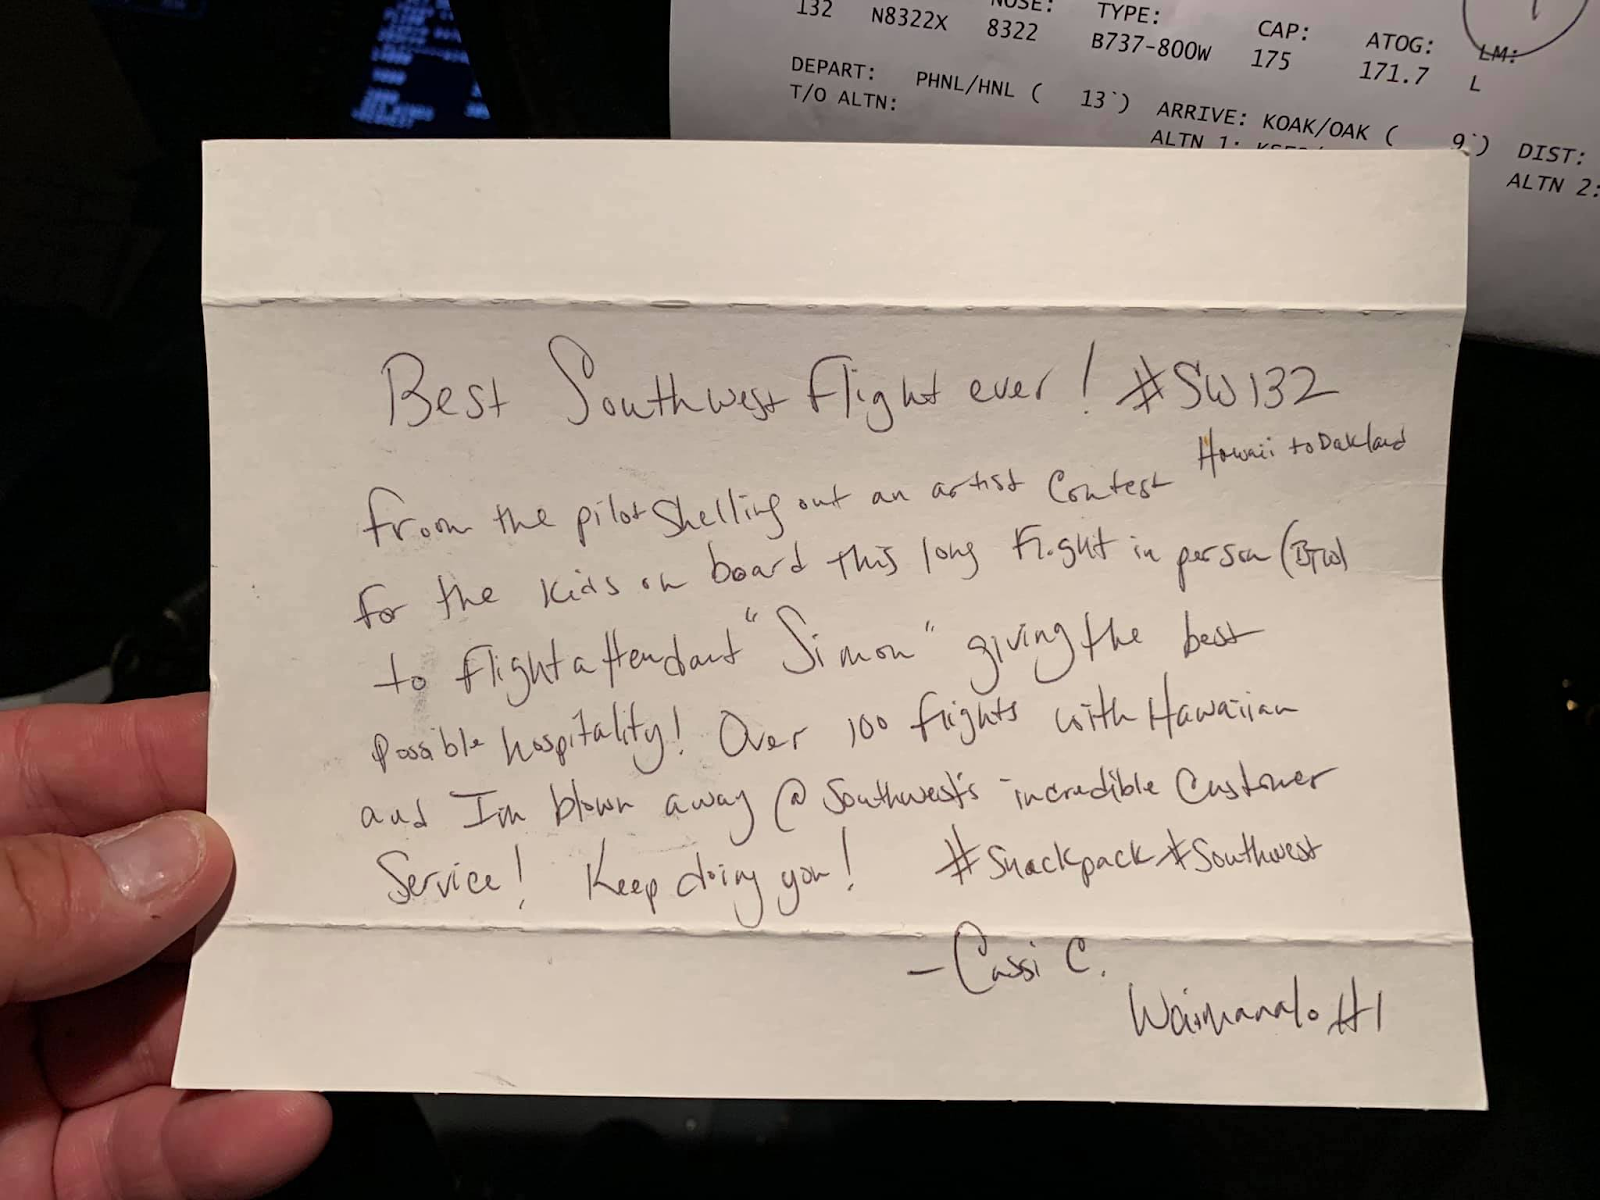 132 N8322X NOSE: 8322 TYPE: B737-800W CAP: 175 ATOG: 171.7 LM: L
DEPART: PHNL/HNL ( 13`) ARRIVE: KOAK/OAK ( 9`) DIST:
T/O ALTN: ALTN 1: ALTN 2:
Best Southwest flight ever! #SW132
Hawaii to Oakland
from the pilot shelling out an artist contest
for the kids on board this long flight in person (BTW)
to flight attendant "Simon" giving the best
possible hospitality! Over 100 flights with Hawaiian
and I'm blown away @ Southwest's incredible Customer
Service! Keep doing you! #Snackpack #Southwest
- Cassi C.
Waimanalo HI